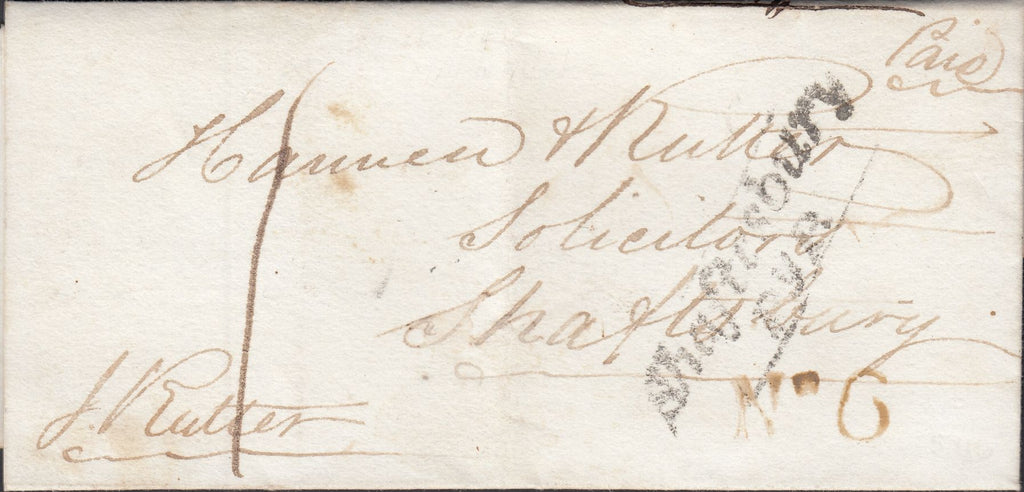 Paid
Hannen & Rutter
Solicitors
Shaftsbury
J. Rutter
1
Shaftesbury
Py. P.
No. 6